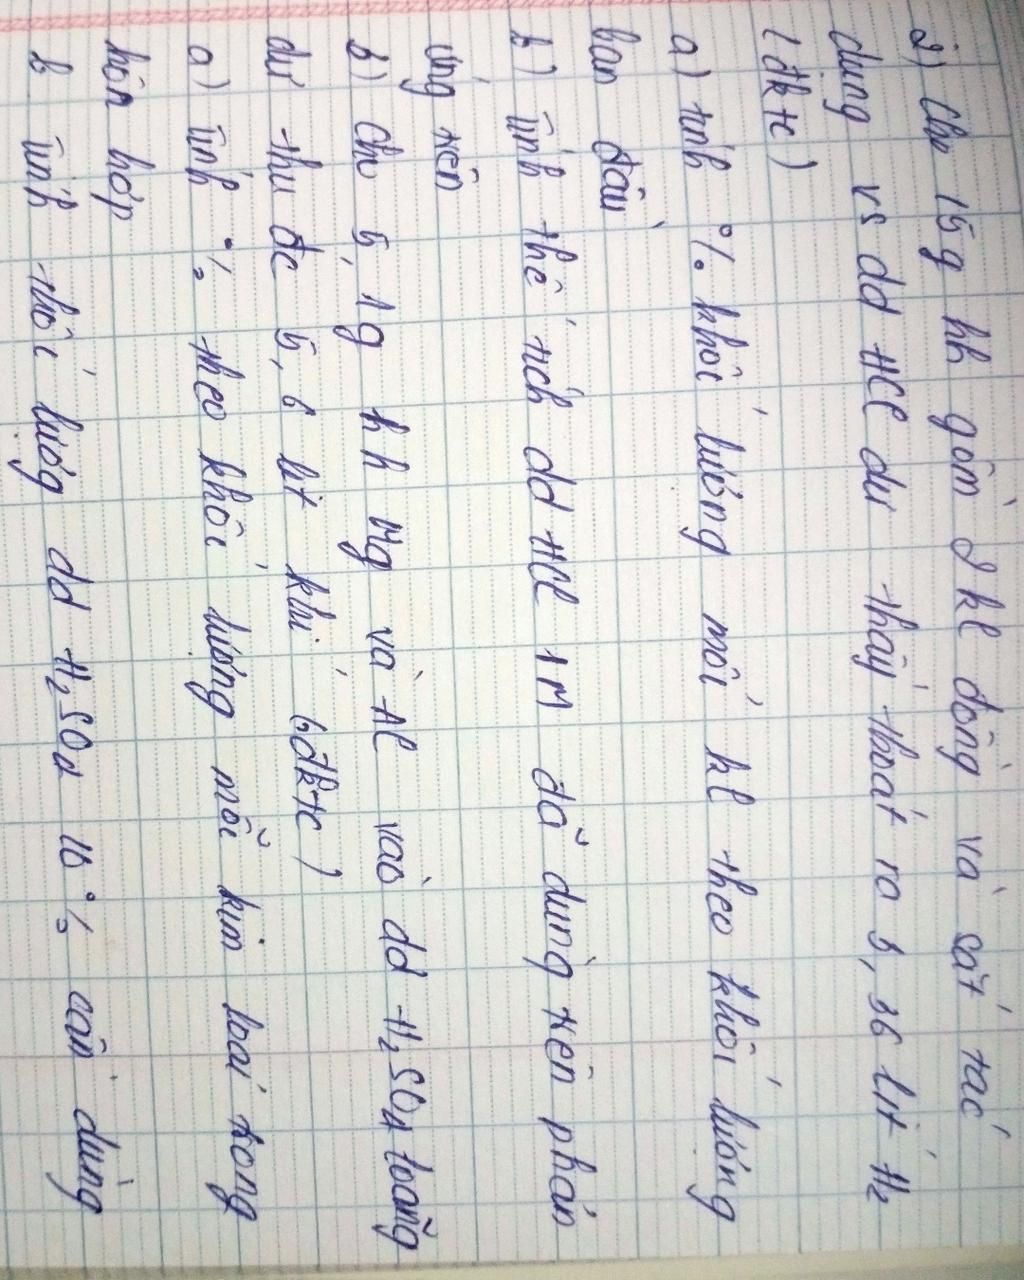 2) Cho 15g hh gồm 2 kl đồng và sắt tác
dụng vs dd HCl dư thấy thoát ra 3,36 lít H2
(đktc)
a) tính % khối lượng mỗi kl theo khối lượng
ban đầu
b) tính thể tích dd HCl 1M đã dùng trên phản
ứng trên
3) Cho 5,1g hh Mg và Al vào dd H2SO4 loãng
dư thu đc 5,6 lít khí (đktc)
a) tính % theo khối lượng mỗi kim loại trong
hỗn hợp
b tính khối lượg dd H2SO4 10% cần dùng